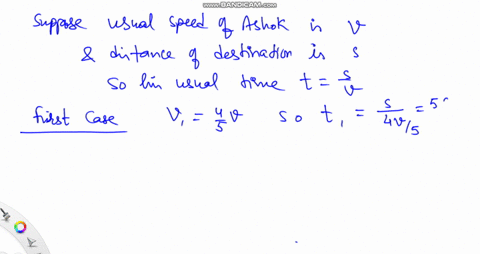 WWW.BANDICAM.COM
Suppose usual speed of Ashok is v
& distance of destination is s
so his usual time t = s/v
first Case V₁ = 4/5 v so t₁ = s/(4v/5) = 5